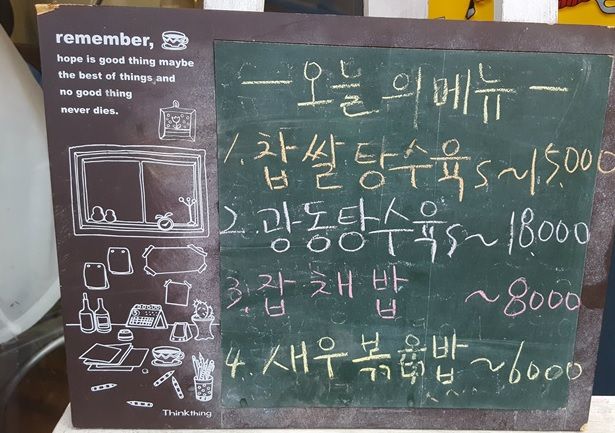 remember,
hope is good thing maybe
the best of things and
no good thing
never dies.
- 오늘의메뉴 -
1. 찹쌀탕수육 s~15.000
2. 광동탕수육 s~18.000
3. 잡채밥 ~8000
4. 새우볶육밥 ~6000
Thinkthing